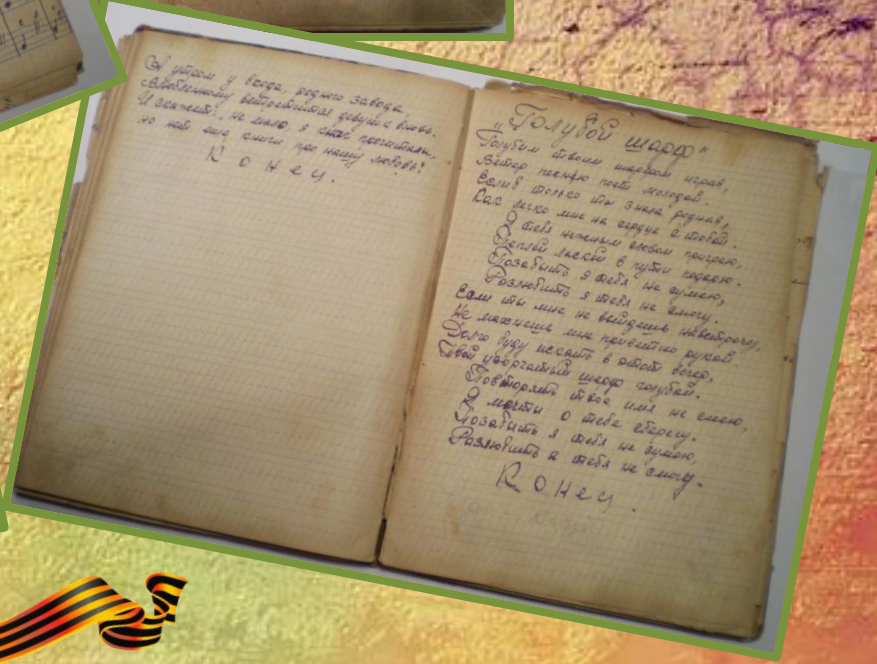 А утром у входа, родного завода
Влюбленному встретится девушка вновь.
И скажет:, не мало, я книг прочитала,
но нет ещё книги про нашу любовь!
Конец.
„Голубой шарф"
Голубым твоим шарфом играя,
Ветер песню поёт молодой.
Если б только ты знала родная,
Как легко мне на сердце с тобой.
Я тебя нежным словом пригрею,
Тёплой лаской в пути подарю.
Позабыть я тебя не сумею,
Разлюбить я тебя не смогу.
Если ты мне не выйдешь навстречу,
Не махнёшь мне приветно рукой
Долго буду искать в этот вечер,
Твой узорчатый шарф голубой.
Повторять твоё имя не смею,
Я мечты о тебе сберегу.
Позабыть я тебя не сумею,
Разлюбить я тебя не смогу.
Конец.